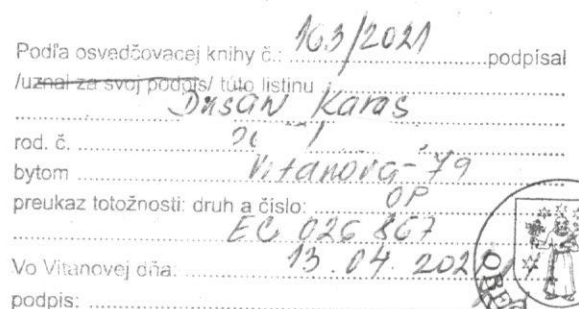 Podľa osvedčovacej knihy č.: 163/2021 podpísal
/uznal za svoj podpis/ túto listinu
Dušan Karas
rod. č.
bytom Vitanová-79
preukaz totožnosti: druh a číslo: OP
EC 026 867
Vo Vitanovej dňa: 13.04.2021
podpis:
OBEC